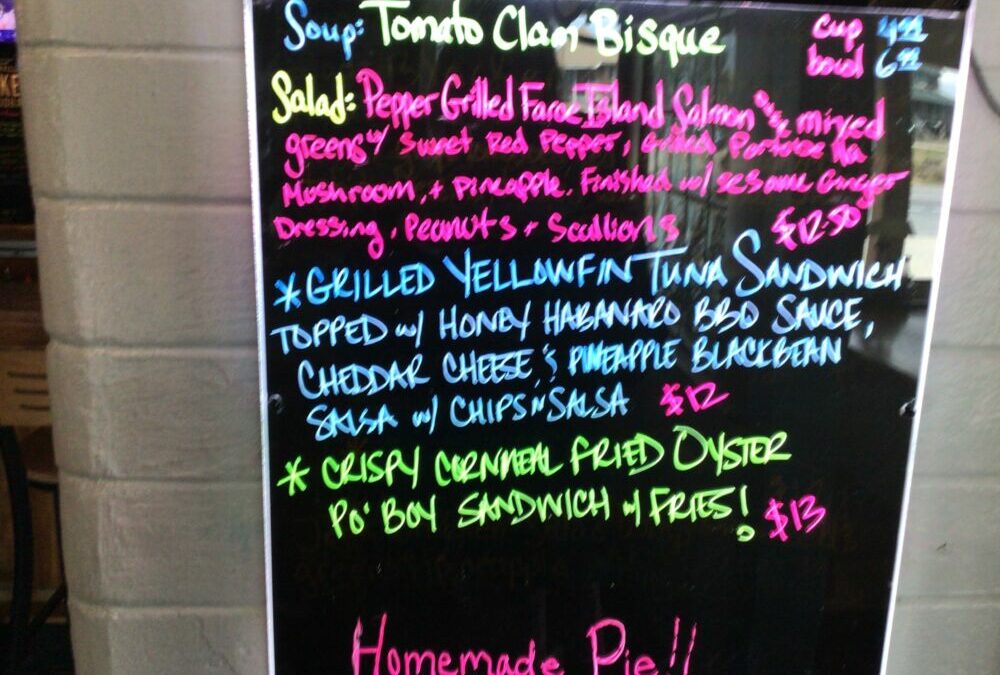 Soup: Tomato Clam Bisque cup 4.99
bowl 6.99
Salad: Pepper Grilled Faroe Island Salmon o/ mixed
greens w/ Sweet Red Pepper, Grilled Portobella
Mushroom, + Pineapple. Finished w/ sesame Ginger
Dressing, Peanuts + Scallions $12.50
*GRILLED YELLOWFIN TUNA SANDWICH
TOPPED w/ HONEY HABANARO BBQ SAUCE,
CHEDDAR CHEESE, & PINEAPPLE BLACKBEAN
SALSA w/ CHIPS N SALSA $12
* CRISPY CORNMEAL FRIED OYSTER
PO' BOY SANDWICH w/ FRIES! $13
Homemade Pie!!